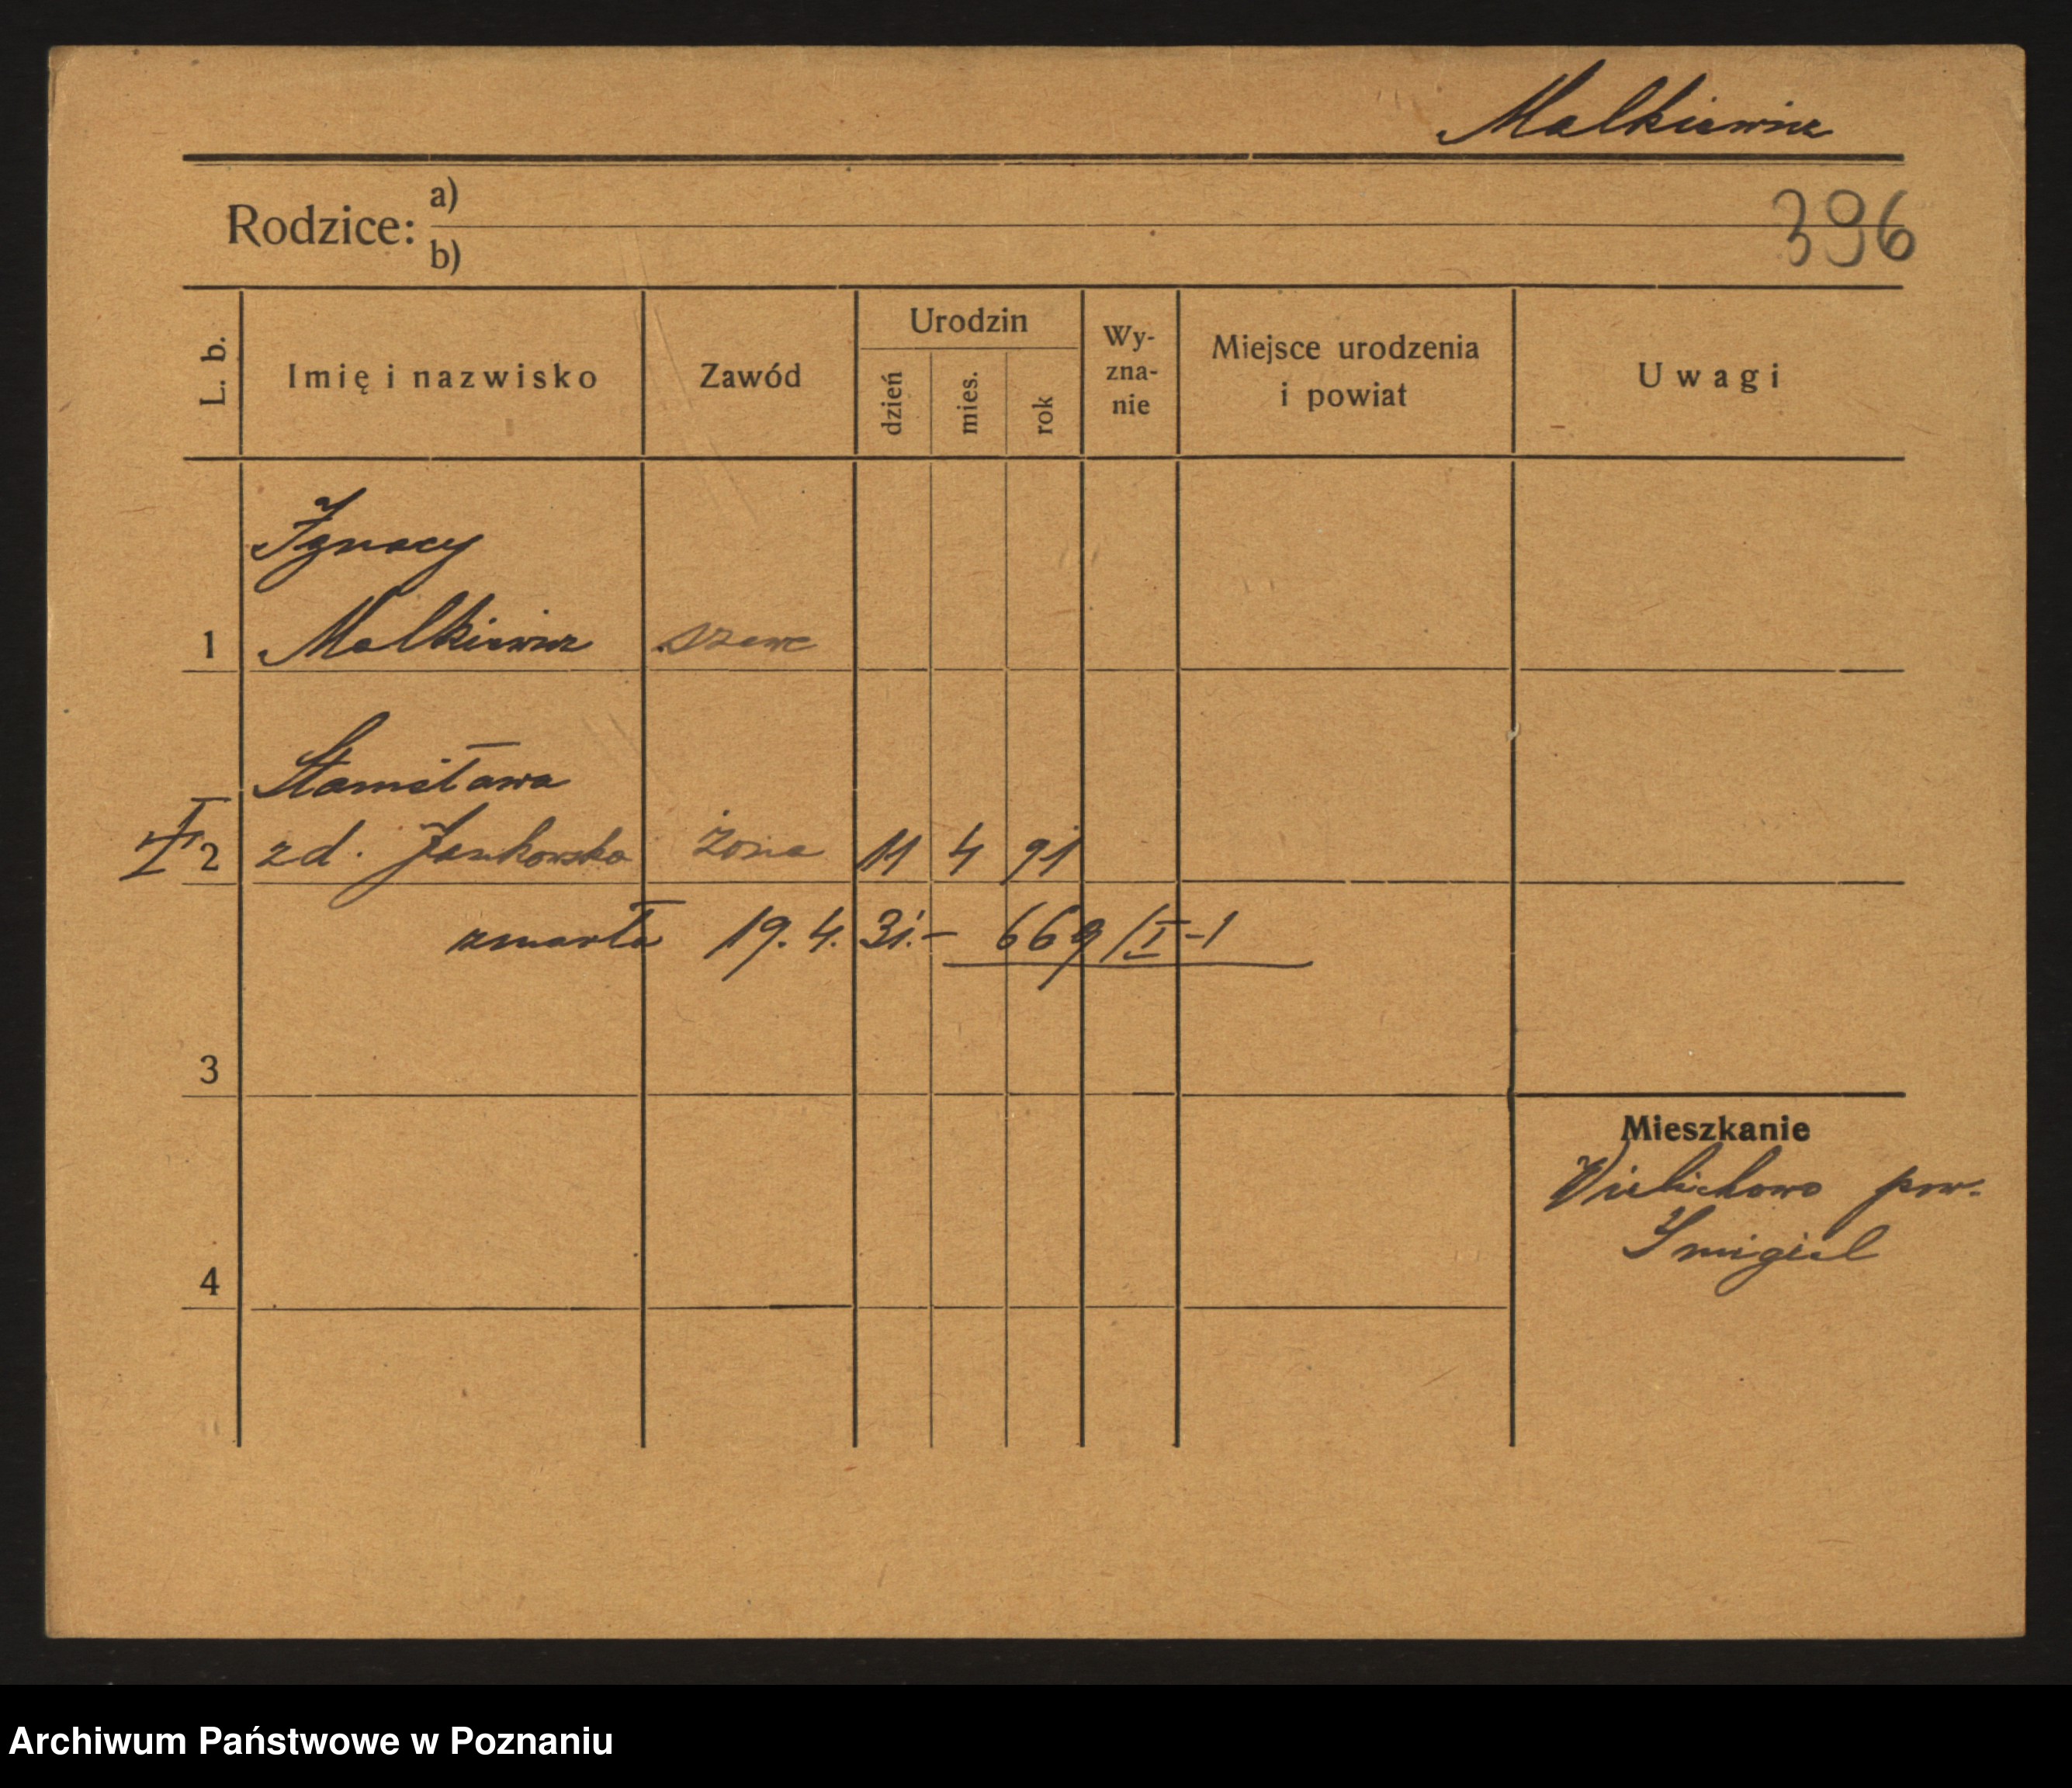 Malkiewicz
Rodzice: a)
b)
396
L. b. Imię i nazwisko Zawód Urodzin dzień mies. rok Wy-zna-nie Miejsce urodzenia i powiat Uwagi
Ignacy
1 Malkiewicz szewc
Stanisława
2 zd. Jankowska żona 11 4 91
zmarła 19. 4. 31. – 669/I-1
3
Mieszkanie
Wielichowo pow.
Smigiel
4
Archiwum Państwowe w Poznaniu